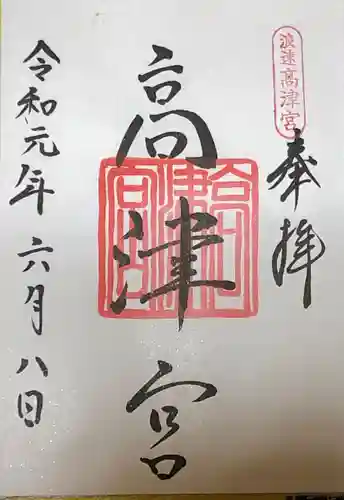 浪速高津宮
奉拝
高津宮
令和元年六月八日